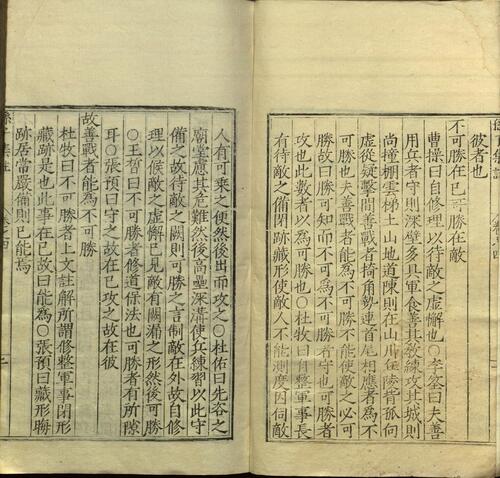 彼者也
不可勝在己可勝在敵
曹操曰自修理以待敵之虛懈也○李筌曰夫善
用兵者守則深壁多具軍食善其教練攻其城則
尚橦棚雲梯土山地道陳則在山川丘陵背孤向
虛從疑擊間善戰者掎角勢連首尾相應者為不
可勝也夫善戰者能為不可勝不能使敵之必可
勝故曰勝可知而不可為不可勝者守也可勝者
攻也此數者以為可勝也○杜牧曰自整軍事長
有待敵之備閉跡藏形使敵人不能測度因伺敵
人有可乘之便然後出而攻之○杜佑曰先咨之
廟堂慮其危難然後高壘深溝使兵練習以此守
備之故待敵之闕則可勝之言制敵在外故自修
理以候敵之虛懈已見敵有闕漏之形然後可勝
○王晳曰不可勝者修道保法也可勝者有所隙
耳○張預曰守之故在己攻之故在彼
故善戰者能為不可勝
杜牧曰不可勝者上文註解所謂修整軍事閉形
藏跡是也此事在己故曰能為○張預曰藏形晦
跡居常嚴備則己能焉
孫子集註